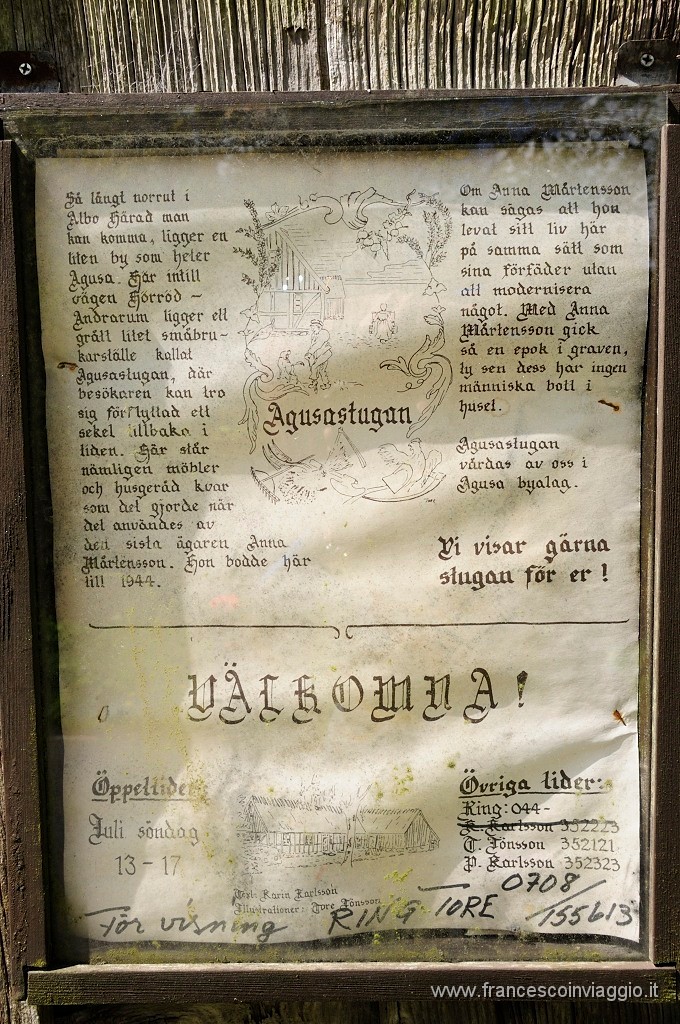 Så långt norrut i
Albo Härad man
kan komma, ligger en
liten by som heter
Agusa. Här intill
vägen Hörröd -
Andrarum ligger ett
grått litet småbru-
karställe kallat
Agusastugan, där
besökaren kan tro
sig förflyttad ett
sekel tillbaka i
tiden. Här står
nämligen möbler
och husgeråd kvar
som det gjorde när
det användes av
den sista ägaren Anna
Mårtensson. Hon bodde här
till 1944.
Agusastugan
Om Anna Mårtensson
kan sägas att hon
levat sitt liv här
på samma sätt som
sina förfäder utan
att modernisera
något. Med Anna
Mårtensson gick
så en epok i graven,
ty sen dess har ingen
människa bott i
huset.
Agusastugan
vårdas av oss i
Agusa byalag.
Vi visar gärna
stugan för er !
VÄLKOMNA!
Öppettider
Juli söndag
13 - 17
Övriga tider:
Ring: 044-
K. Karlsson 352223
T. Jönsson 352121
P. Karlsson 352323
Text: Karin Karlsson
Illustrationer: Tore Jönsson
För visning RING TORE 0708/155613
www.francescoinviaggio.it